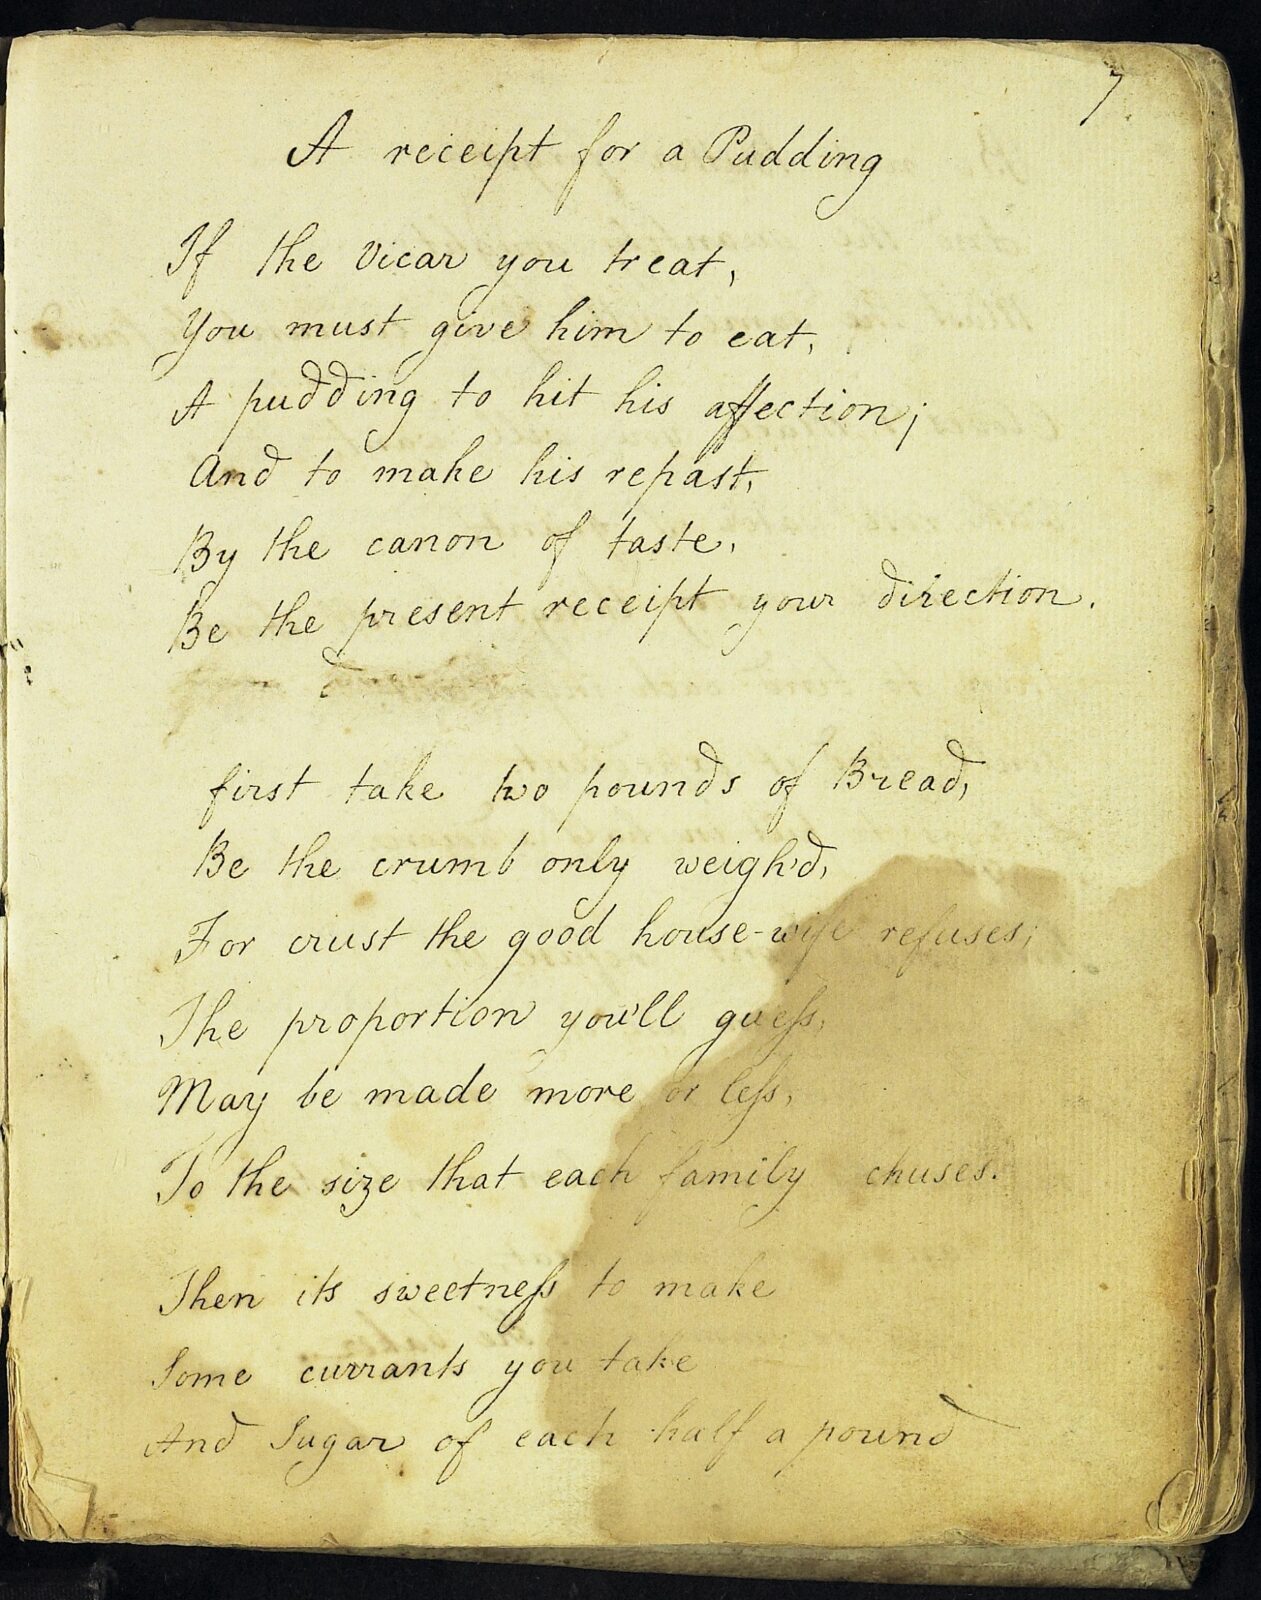 7
A receipt for a Pudding
If the Vicar you treat,
You must give him to eat,
A pudding to hit his affection;
And to make his repast,
By the canon of taste,
Be the present receipt your direction.
first take two pounds of Bread,
Be the crumb only weigh'd,
For crust the good house-wife refuses;
The proportion you'll guess,
May be made more or less,
To the size that each family chuses.
Then its sweetness to make
Some currants you take
And Sugar of each half a pound